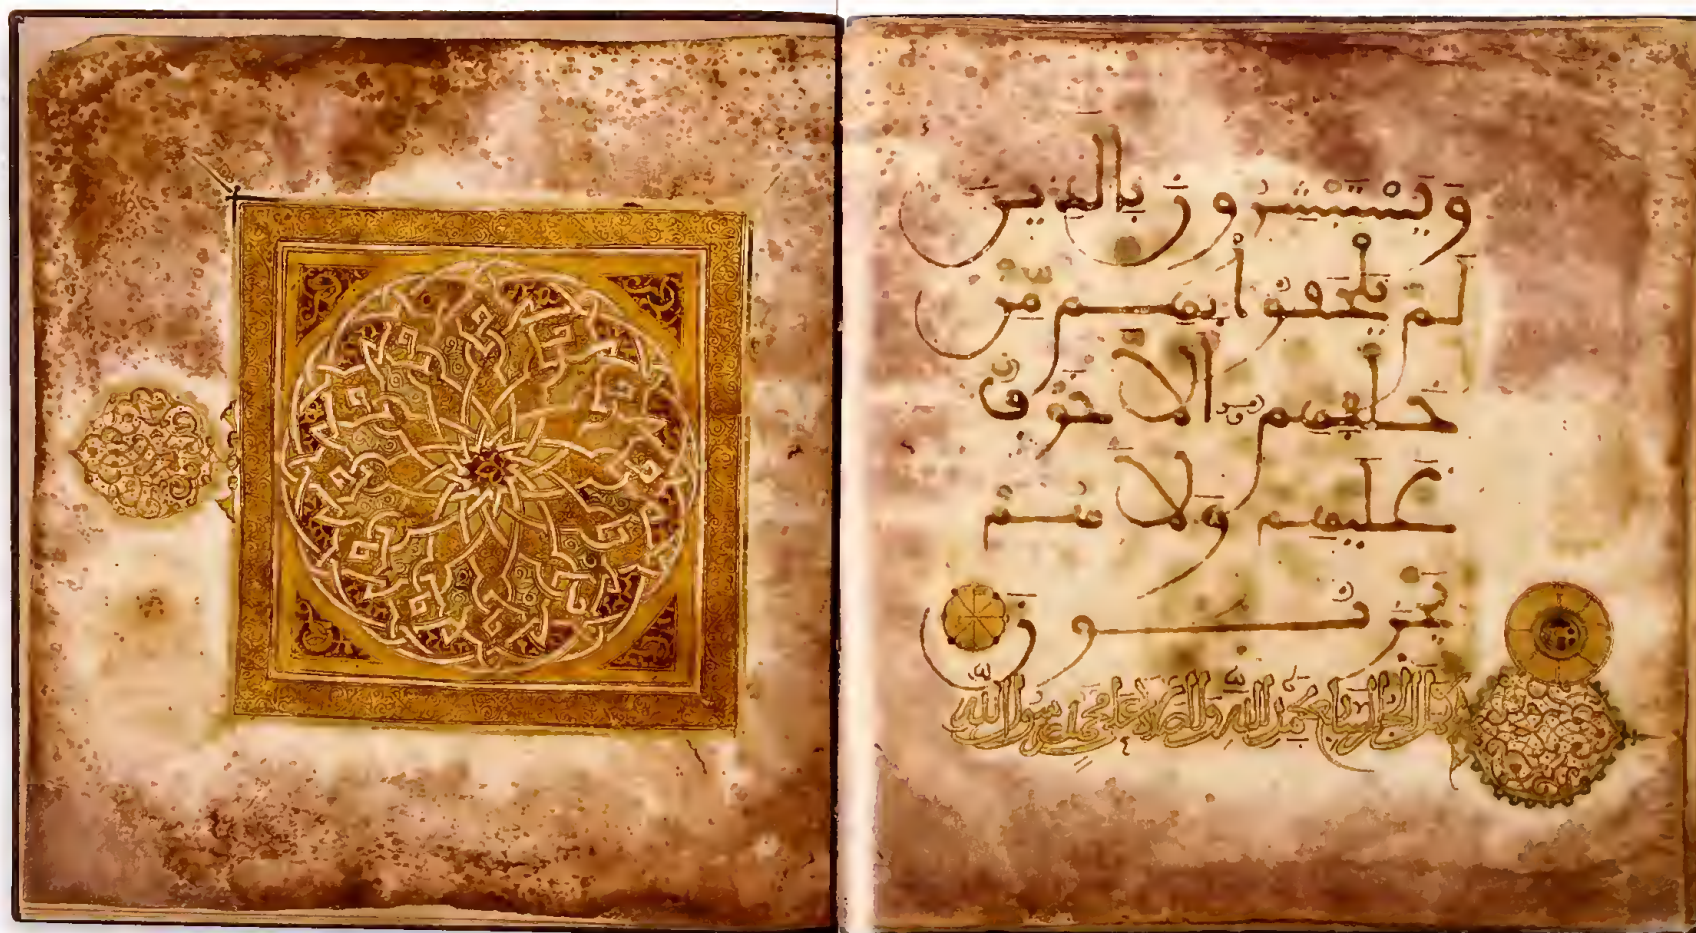 وَيَسْتَبْشِرُونَ بِالَّذِينَ
لَمْ يَلْحَقُوا بِهِم مِّنْ
خَلْفِهِمُ أَلَّا خَوْفٌ
عَلَيْهِمْ وَلَا هُمْ
يَحْزَنُونَ
كمل الجزء السابع بحمد الله والصلاة على محمد رسول الله